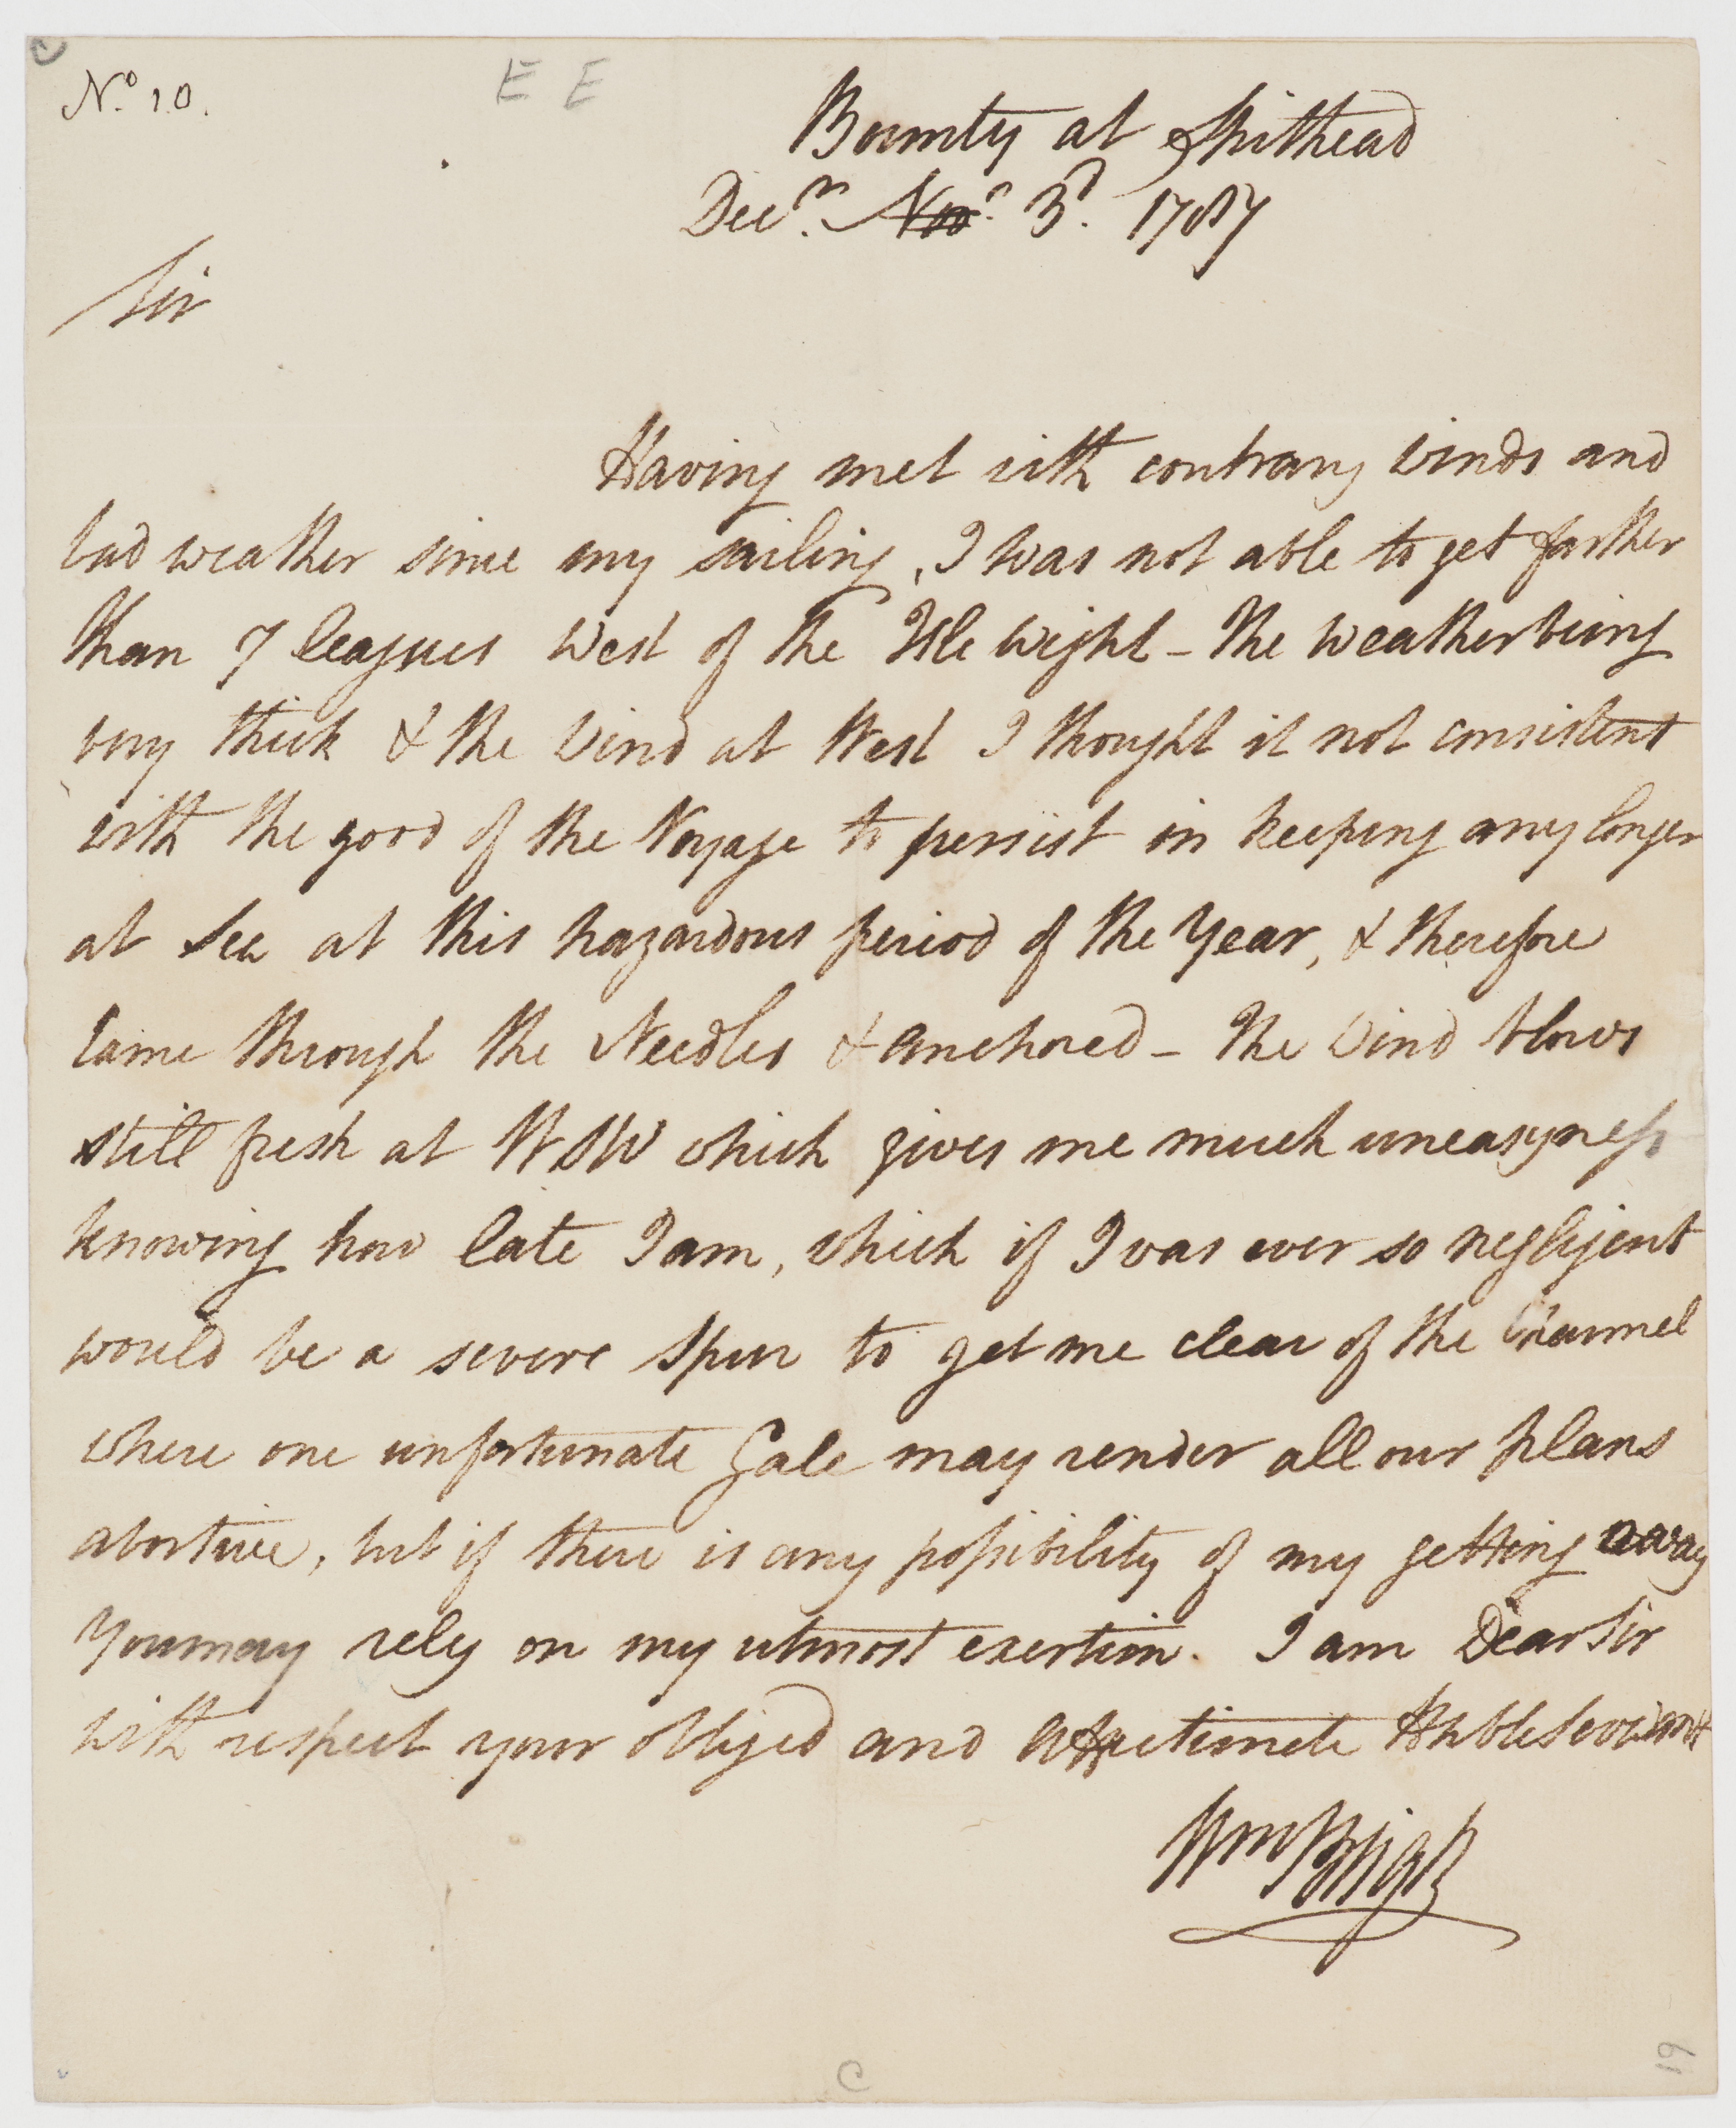 No. 10.
E E
Bounty at Spithead
Decr. ~~Nov~~r 3d. 1787
Sir
Having met with contrary Winds and
bad weather since my sailing, I was not able to get farther
than 7 leagues West of the Isle Wight - The Weather being
very thick & the Wind at West I thought it not consistent
with the good of the Voyage to persist in keeping any longer
at Sea at this hazardous period of the Year, & therefore
came through the Needles & anchored - The Wind blows
still fresh at WSW which gives me much uneasyness
knowing how late I am, which if I was ever so negligent
would be a severe Spur to get me clear of the Channel
where one unfortunate Gale may render all our plans
abortive, but if there is any possibility of my getting away
You may rely on my utmost exertion. I am Dear Sir
with respect your obliged and affectionate Hble Servant
Wm Bligh
C
19